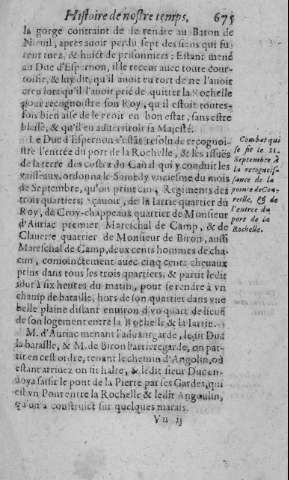 Histoire de nostre temps. 675
la gorge contraint de se rendre au Baron de
Nieuil, apres auoir perdu sept des siens qui fu-
rent tuez, & huict de prisonniers: Estant mené
au Duc d'Espernon, il le receut auec toute cour-
toisie, & luy dit, qu'il auoit eu tort de ne l'auoir
creu lors qu'il l'auoit prié de quitter la Rochelle
pour recognoistre son Roy, qu'il estoit toutes-
fois bien aise de le reoir en bon estat, sans estre
blessé, & qu'il en aduertiroit sa Majesté.
Le Duc d'Espernon s'estât resolu de recognoi-
stre l'entrée du port de la Rochelle, & les issuës
de la terre des costez du Canal qui y conduit les
vaisseaux, ordonna le Samedy vnziesme du mois
de Septembre, qu'on print cinq Regiments des
trois quartiers; sçauoir, de la Iarrie quartier du
Roy, de Croy-chappeaux quartier de Monsieur
d'Auriac premier Mareschal de Camp, & de
Clauette quartier de Monsieur de Biron, aussi
Mareschal de Camp, deux cents hommes de cha-
cun, conioinctement auec cinq cents cheuaux
prins dans tous les trois quartiers, & partit ledit
iour à six heures du matin, pour se rendre à vn
champ de bataille, hors de son quartier dans vne
belle plaine distant enuiron d'vn quart de lieuë
de son logement entre la Rochelle & la Iarrie.
M. d'Auriac menant l'aduantgarde, ledit Duc
la bataille, & M. de Biron l'arrieregarde, on par-
tit en cest ordre, tenant le chemin d'Angolin, où
estant arriuez on fit halte, & ledit sieur Duc en-
uoya saisir le pont de la Pierre par ses Gardes, qui
est vn Pont entre la Rochelle & ledit Angoulin,
qu'on a construict sur quelques marais.
Vu ij
Combat qui
se fit le 11.
Septembre à
la recognois-
sance de la
pointe de Co-
reille, & de
l'entrée du
port de la
Rochelle.